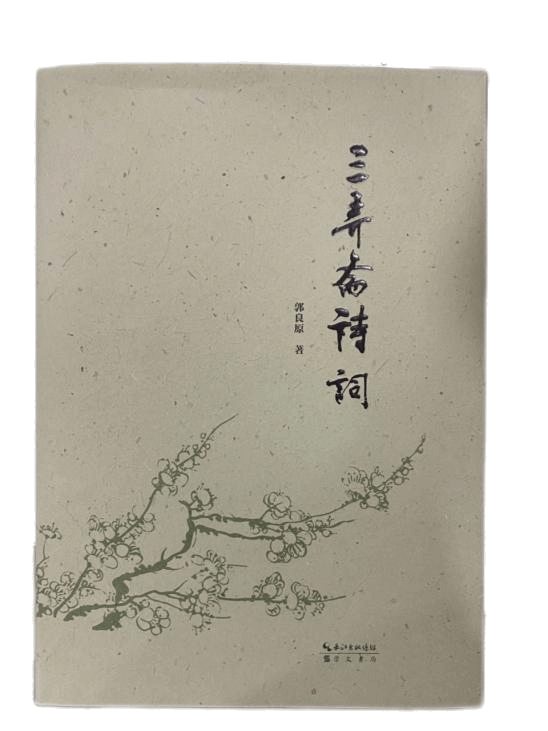 三弄斋诗词
郭良原 著
长江出版传媒
崇文书局